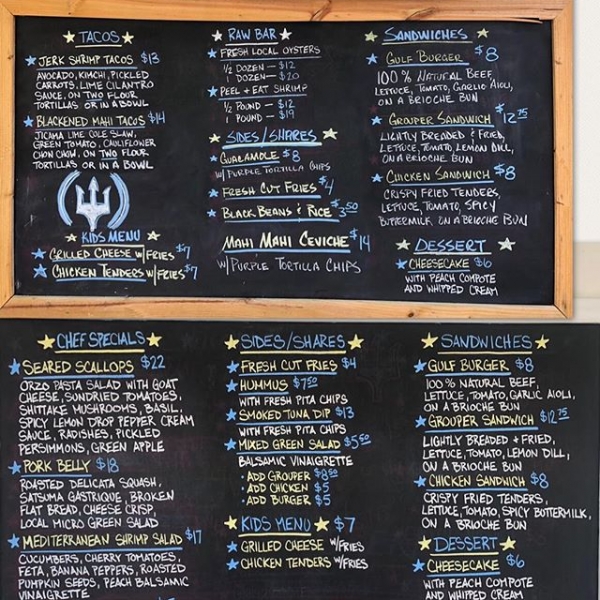 TACOS
JERK SHRIMP TACOS $13
AVOCADO, KIMCHI, PICKLED
CARROTS, LIME CILANTRO
SAUCE, ON TWO FLOUR
TORTILLAS OR IN A BOWL
BLACKENED MAHI TACOS $14
JICAMA LIME COLE SLAW,
GREEN TOMATO, CAULIFLOWER
CHOW CHOW, ON TWO FLOUR
TORTILLAS OR IN A BOWL
KIDS MENU
GRILLED CHEESE W/FRIES $7
CHICKEN TENDERS W/FRIES $7
RAW BAR
FRESH LOCAL OYSTERS
1/2 DOZEN — $12
1 DOZEN — $20
PEEL + EAT SHRIMP
1/2 POUND — $12
1 POUND — $19
SIDES/SHARES
GUACAMOLE $8
W/ PURPLE TORTILLA CHIPS
FRESH CUT FRIES $4
BLACK BEANS & RICE $3.50
MAHI MAHI CEVICHE $14
W/ PURPLE TORTILLA CHIPS
SANDWICHES
GULF BURGER $8
100% NATURAL BEEF,
LETTUCE, TOMATO, GARLIC AIOLI,
ON A BRIOCHE BUN
GROUPER SANDWICH $12.75
LIGHTLY BREADED & FRIED,
LETTUCE, TOMATO, LEMON DILL,
ON A BRIOCHE BUN
CHICKEN SANDWICH $8
CRISPY FRIED TENDERS,
LETTUCE, TOMATO, SPICY
BUTTERMILK, ON A BRIOCHE BUN
DESSERT
CHEESECAKE $6
WITH PEACH COMPOTE
AND WHIPPED CREAM
CHEF SPECIALS
SEARED SCALLOPS $22
ORZO PASTA SALAD WITH GOAT
CHEESE, SUNDRIED TOMATOES,
SHITTAKE MUSHROOMS, BASIL,
SPICY LEMON DROP PEPPER CREAM
SAUCE, RADISHES, PICKLED
PERSIMMONS, GREEN APPLE
PORK BELLY $18
ROASTED DELICATA SQUASH,
SATSUMA GASTRIQUE, BROKEN
FLAT BREAD, CHEESE CRISP,
LOCAL MICRO GREEN SALAD
MEDITERRANEAN SHRIMP SALAD $17
CUCUMBERS, CHERRY TOMATOES,
FETA, BANANA PEPPERS, ROASTED
PUMPKIN SEEDS, PEACH BALSAMIC
VINAIGRETTE
SIDES/SHARES
FRESH CUT FRIES $4
HUMMUS $7.50
WITH FRESH PITA CHIPS
SMOKED TUNA DIP $13
WITH FRESH PITA CHIPS
MIXED GREEN SALAD $5.50
BALSAMIC VINAIGRETTE
· ADD GROUPER $8.50
· ADD CHICKEN $5
· ADD BURGER $5
KIDS MENU $7
GRILLED CHEESE W/FRIES
CHICKEN TENDERS W/FRIES
SANDWICHES
GULF BURGER $8
100% NATURAL BEEF,
LETTUCE, TOMATO, GARLIC AIOLI,
ON A BRIOCHE BUN
GROUPER SANDWICH $12.75
LIGHTLY BREADED + FRIED,
LETTUCE, TOMATO, LEMON DILL,
ON A BRIOCHE BUN
CHICKEN SANDWICH $8
CRISPY FRIED TENDERS,
LETTUCE, TOMATO, SPICY BUTTERMILK,
ON A BRIOCHE BUN
DESSERT
CHEESECAKE $6
WITH PEACH COMPOTE
AND WHIPPED CREAM